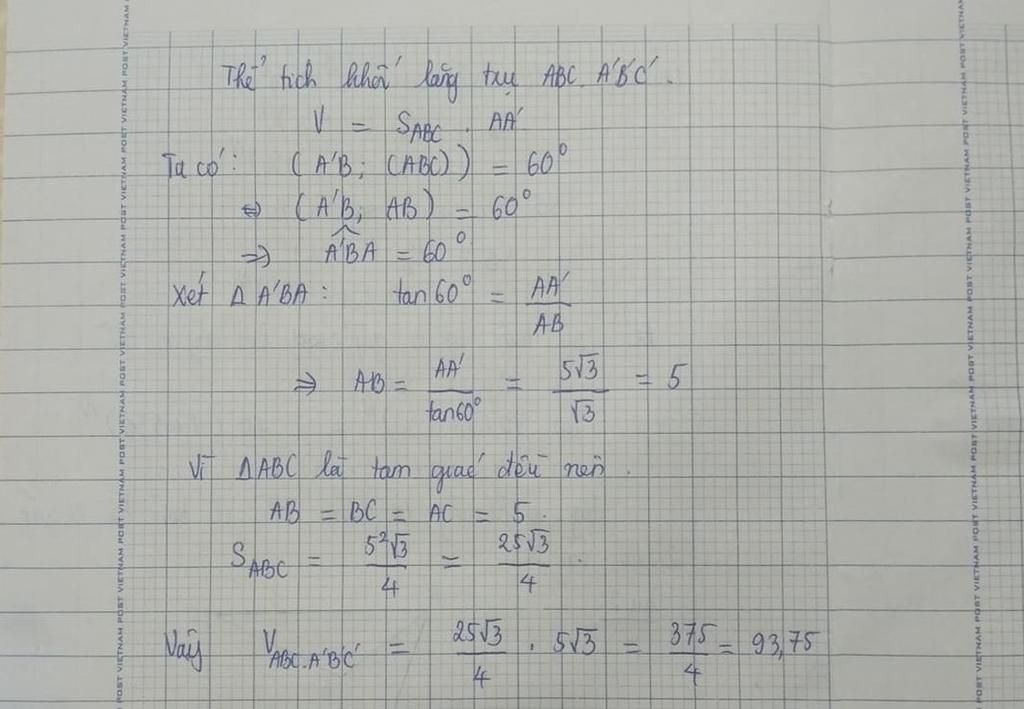 Thể tích khối lăng trụ ABC.A'B'C'.
V = S_ABC . AA'
Ta có: (A'B; (ABC)) = 60°
⇔ (A'B; AB) = 60°
⇒ A'BA = 60°
Xét Δ A'BA: tan60° = AA'/AB
⇒ AB = AA'/tan60° = 5√3/√3 = 5
Vì ΔABC là tam giác đều nên.
AB = BC = AC = 5.
S_ABC = 5²√3/4 = 25√3/4.
Vậy V_ABC.A'B'C' = 25√3/4 . 5√3 = 375/4 = 93,75
VIETNAM POST VIETNAM POST VIETNAM POST VIETNAM POST VIETNAM POST
VIETNAM POST VIETNAM POST VIETNAM POST VIETNAM POST VIETNAM POST